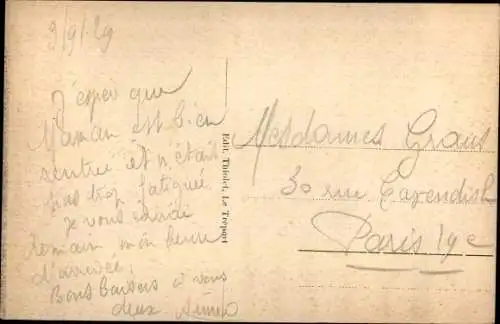 9/9/29
J'espère que
Maman est bien
rentrée et n'était
pas trop fatiguée
Je vous
demain mon heure
d'arrivée.
Bons baisers à vous
deux
Edit. Thiolet, Le Tréport
Mesdames Graus
30 rue Cavendish
Paris 19e